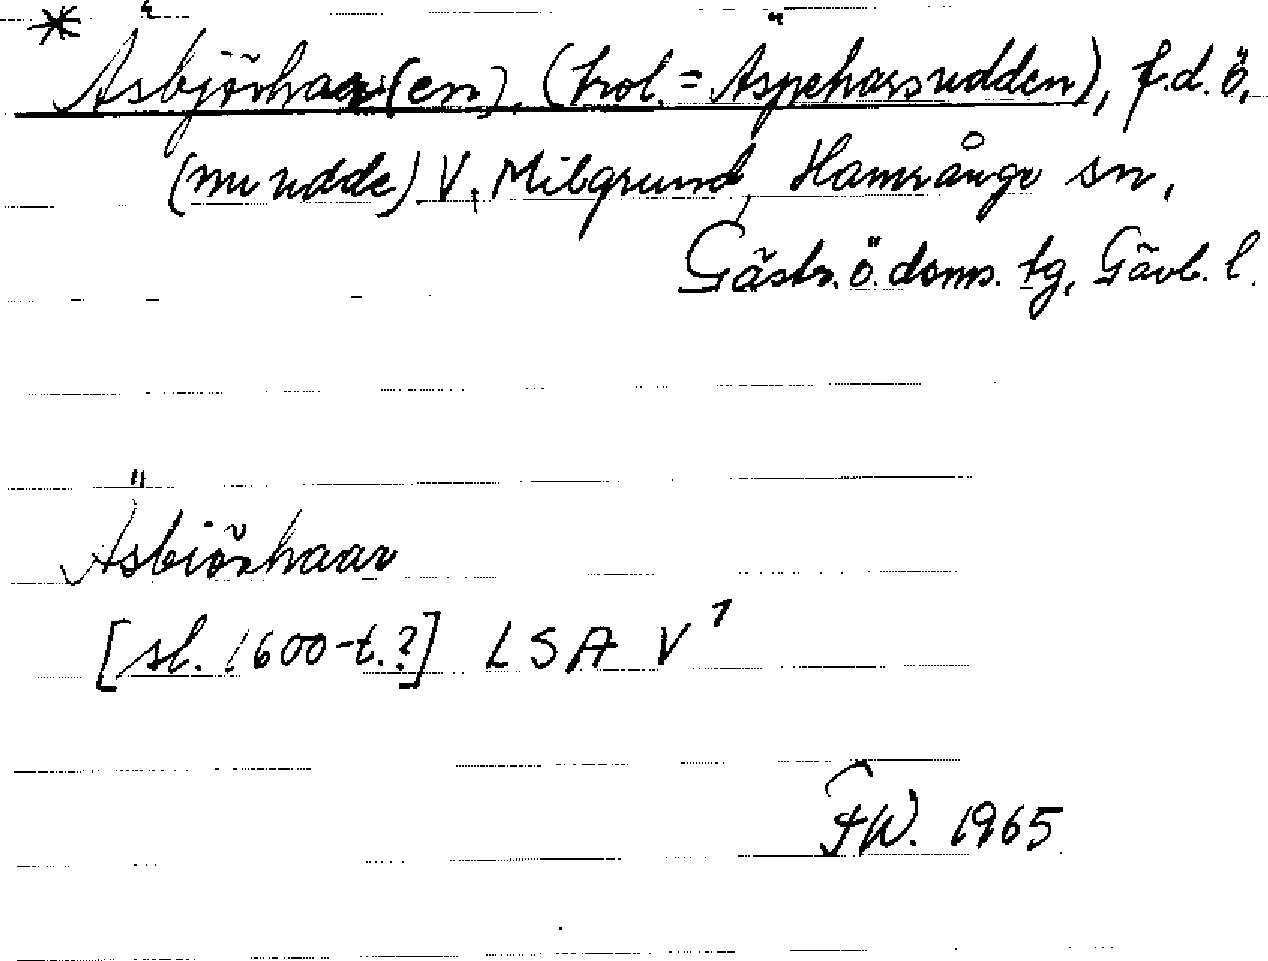 * Äsbjörhaar(en), (trol. = Äspeharsudden), f.d. ö,
(nu udde) V. Milgrund, Hamrånge sn,
Gästr. ö. doms. tg, Gävb. l.
Äsbiörhaar
[sl. 1600-t.?] LSA V 1
FW. 1965